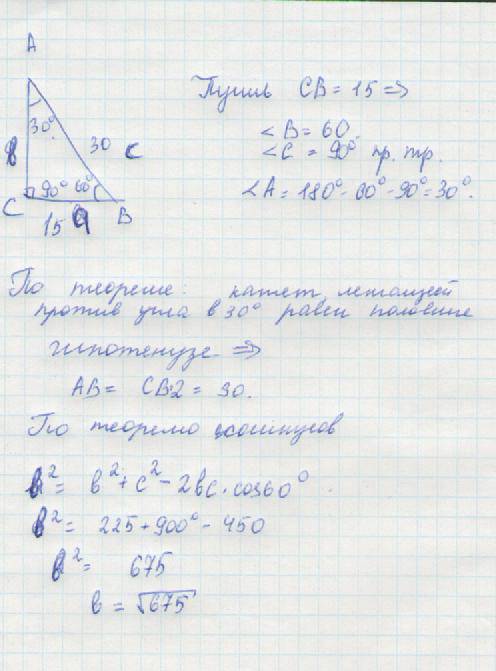 A
Пусть CB = 15 =>
30°
30 c
∠B = 60.
b
∠C = 90° пр. тр.
90° 60°
∠A = 180° - 60° - 90° = 30°.
C
B
15 a
По теореме: катет лежащей
против угла в 30° равен половине
гипотенузе =>
AB = CB·2 = 30.
По теоремо косинусов
b² = b² + c² - 2bc · cos60°
b² = 225 + 900° - 450
b² = 675
b = √675